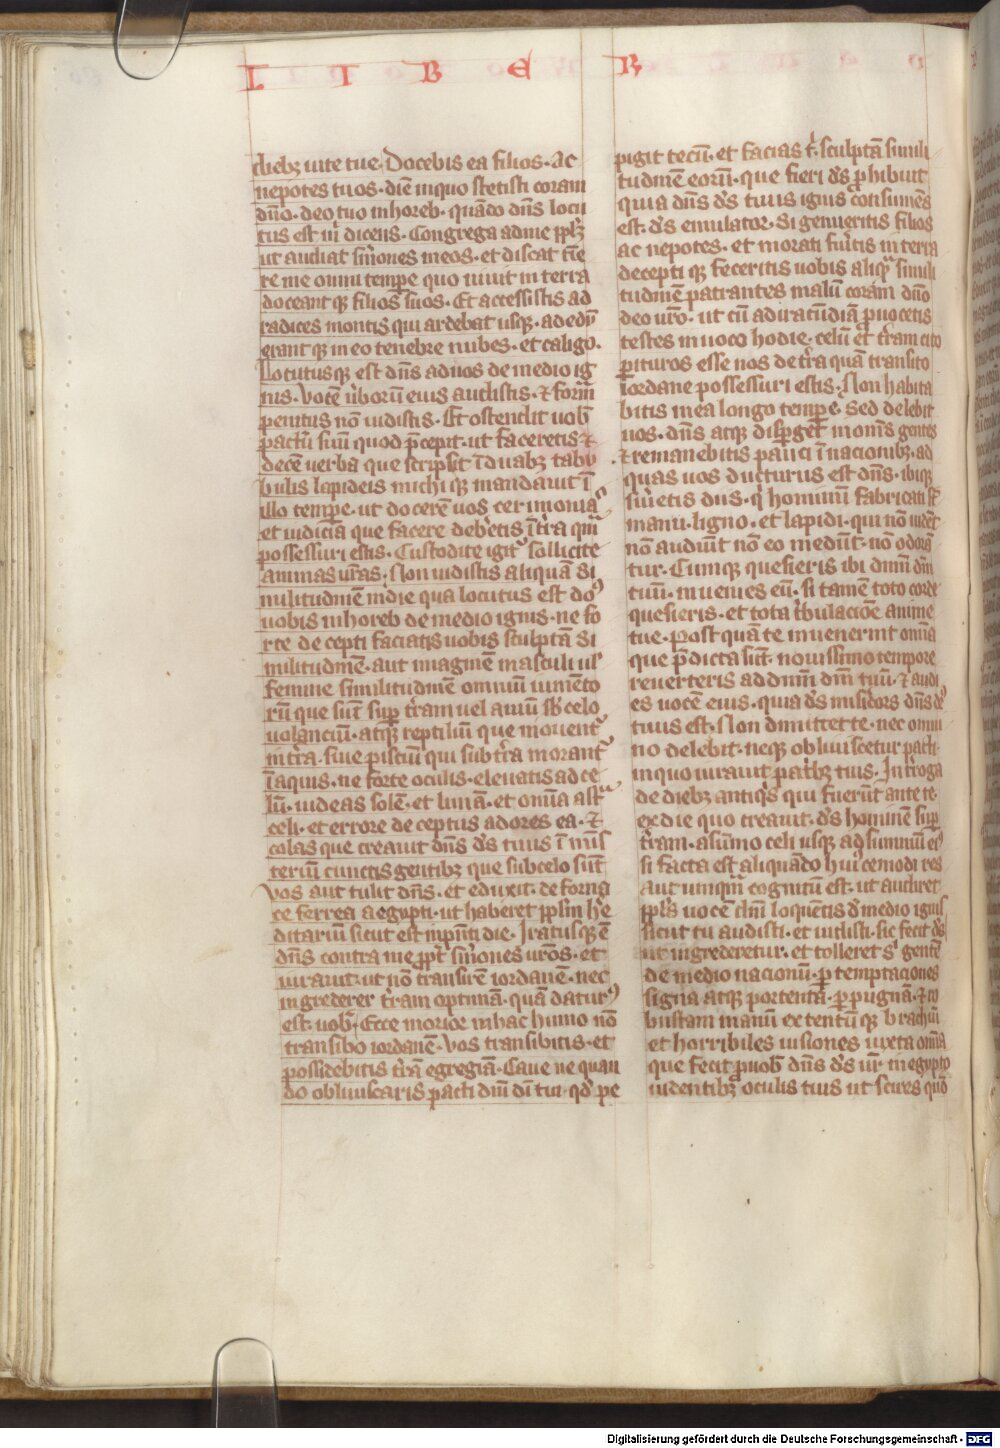 L I B E R
diebꝫ uite tue. Docebis ea filios. Ac
nepotes tuos. diē inquo stetisti coram
dn̄o. deo tuo inhoreb. quādo dn̄s locu
tus est m̄ dicens. Congrega adme pplꝫ
ut audiat sm̄ones meos. et discat time
re me omni tempe quo uiuit in terra
doceant qꝫ filios suos. Et accessistis ad
radices montis qui ardebat usqꝫ. ad
erant qꝫ in eo tenebre nubes. et caligo.
Locutus qꝫ est dn̄s aduos de medio ig
nis. Vocē ūborū eius audistis. et formā
penitus nō uidistis. Et ostendit uob̄
pactū suū quod p̄cepit. ut faceretis et
decē uerba que scripsit ī duabꝫ tabu
bulis lapideis michi qꝫ mandauit ī
illo tempe. ut docerē uos cerimonias
et iudicia que facere deb̄etis ī t̄ra quā
possessuri estis. Custodite igit᷑ sollicite
animas ur̄as. Non uidistis aliquā si
militudinē indie qua locutus est
uobis inhoreb de medio ignis. ne fo
rte decepti faciatis uobis sculptā si
militudinē. aut imaginē masculi ul̄
femine similitudinē omniū iumēto
rū que sūt sup t̄ram uel auiū sb̄ celo
uolanciū. atqꝫ reptiliū que mouent᷑
in t̄ra. siue pisciū qui sub t̄ra morant᷑
ī aquis. ne forte oculis. eleuatis ad ce
lū. uideas solē. et lunā. et omīa ast
celi. et errore deceptus adores ea. et
colas que creauit dn̄s d̄s tuus ī mis
teriū cunctis gentibꝫ que sub celo sūt
Vos aut tulit dn̄s. et eduxit. de forna
ce ferrea aegypti. ut haberet pplm he
ditariū sicut est inpn̄ti die. Iratusqꝫ ē
dn̄s contra me ppt̄ sm̄ones ur̄os. et
iurauit. ut nō transirē iordanē. nec
ingrederer t̄ram optimā. quā datur᷒
est uob̄. Ecce morior in hac humo nō
transibo iordanē. Vos transibitis. et
possidebitis t̄rā egregiā. Caue ne quan
do obliuiscaris pacti dn̄i dī tui. qd̄ pe
pigit tecū. et facias t̄. sculptā simili
tudinē eorū. que fieri d̄s phibuit
quia dn̄s d̄s tuus ignis consumēs
est. d̄s emulator. Si genueritis filios
ac nepotes. et morati fūitis in terra
decepti qꝫ feceritis uobis aliqͣ simili
tudinē patrantes malū coram dn̄o
deo ur̄o. ut eū adiracūdiā puocetis
testes inuoco hodie. celū et t̄ram cito
pituros esse uos de t̄ra quā transito
iordane possessuri estis. Non habita
bitis in ea longo tempe. Sed delebit
uos. dn̄s atqꝫ dispget in om̄s gentes
et remanebitis pauci ī nacionibꝫ. ad
quas uos ducturus est dn̄s. ibiqꝫ
suietis diis. q̄ hominū fabricati st̄
manu. ligno. et lapidi. qui nō uidēt
nō audiūt nō comedūt. nō odorā
tur. Cumqꝫ quesieris ibi dnm̄ dm̄
tuū. inuenies eū. si tamē toto corde
quesieris. et tota t̄bulacione anime
tue. Post quā te inuenerint omīa
que p̄dicta sūt. nouissimo tempore
reuerteris ad dnm̄ dm̄ tuū. et audi
es uocē eius. quia d̄s mis̄icors dn̄s d̄s
tuus est. Non dimittet te. nec omni
no delebit. neqꝫ obliuiscetur pacti.
in quo iurauit patribꝫ tuis. Int̄roga
de diebꝫ antiqis qui fuerūt ante te.
ex die quo creauit. d̄s hominē sup
t̄ram. a sum̄o celi usqꝫ ad summū eius
si facta est aliquādo hui᷒cemodi res
aut umqm̄ cognitū est. ut audiret
ppls̄ uocē dn̄i loquētis de medio ignis
sicut tu audisti. et uidisti. sic fecit d̄s
ut ingrederetur. et tolleret s̄ gentē
de medio nacionū. p temptaciones
signa atqꝫ portenta. p pugnā. et ro
bustam manū extentū qꝫ brachiū
et horribiles uisiones iuxta omīa
que fecit puob̄ dn̄s d̄s ur̄ in egypto
uidentibꝫ oculis tuis ut scires quō
Digitalisierung gefördert durch die Deutsche Forschungsgemeinschaft - DFG